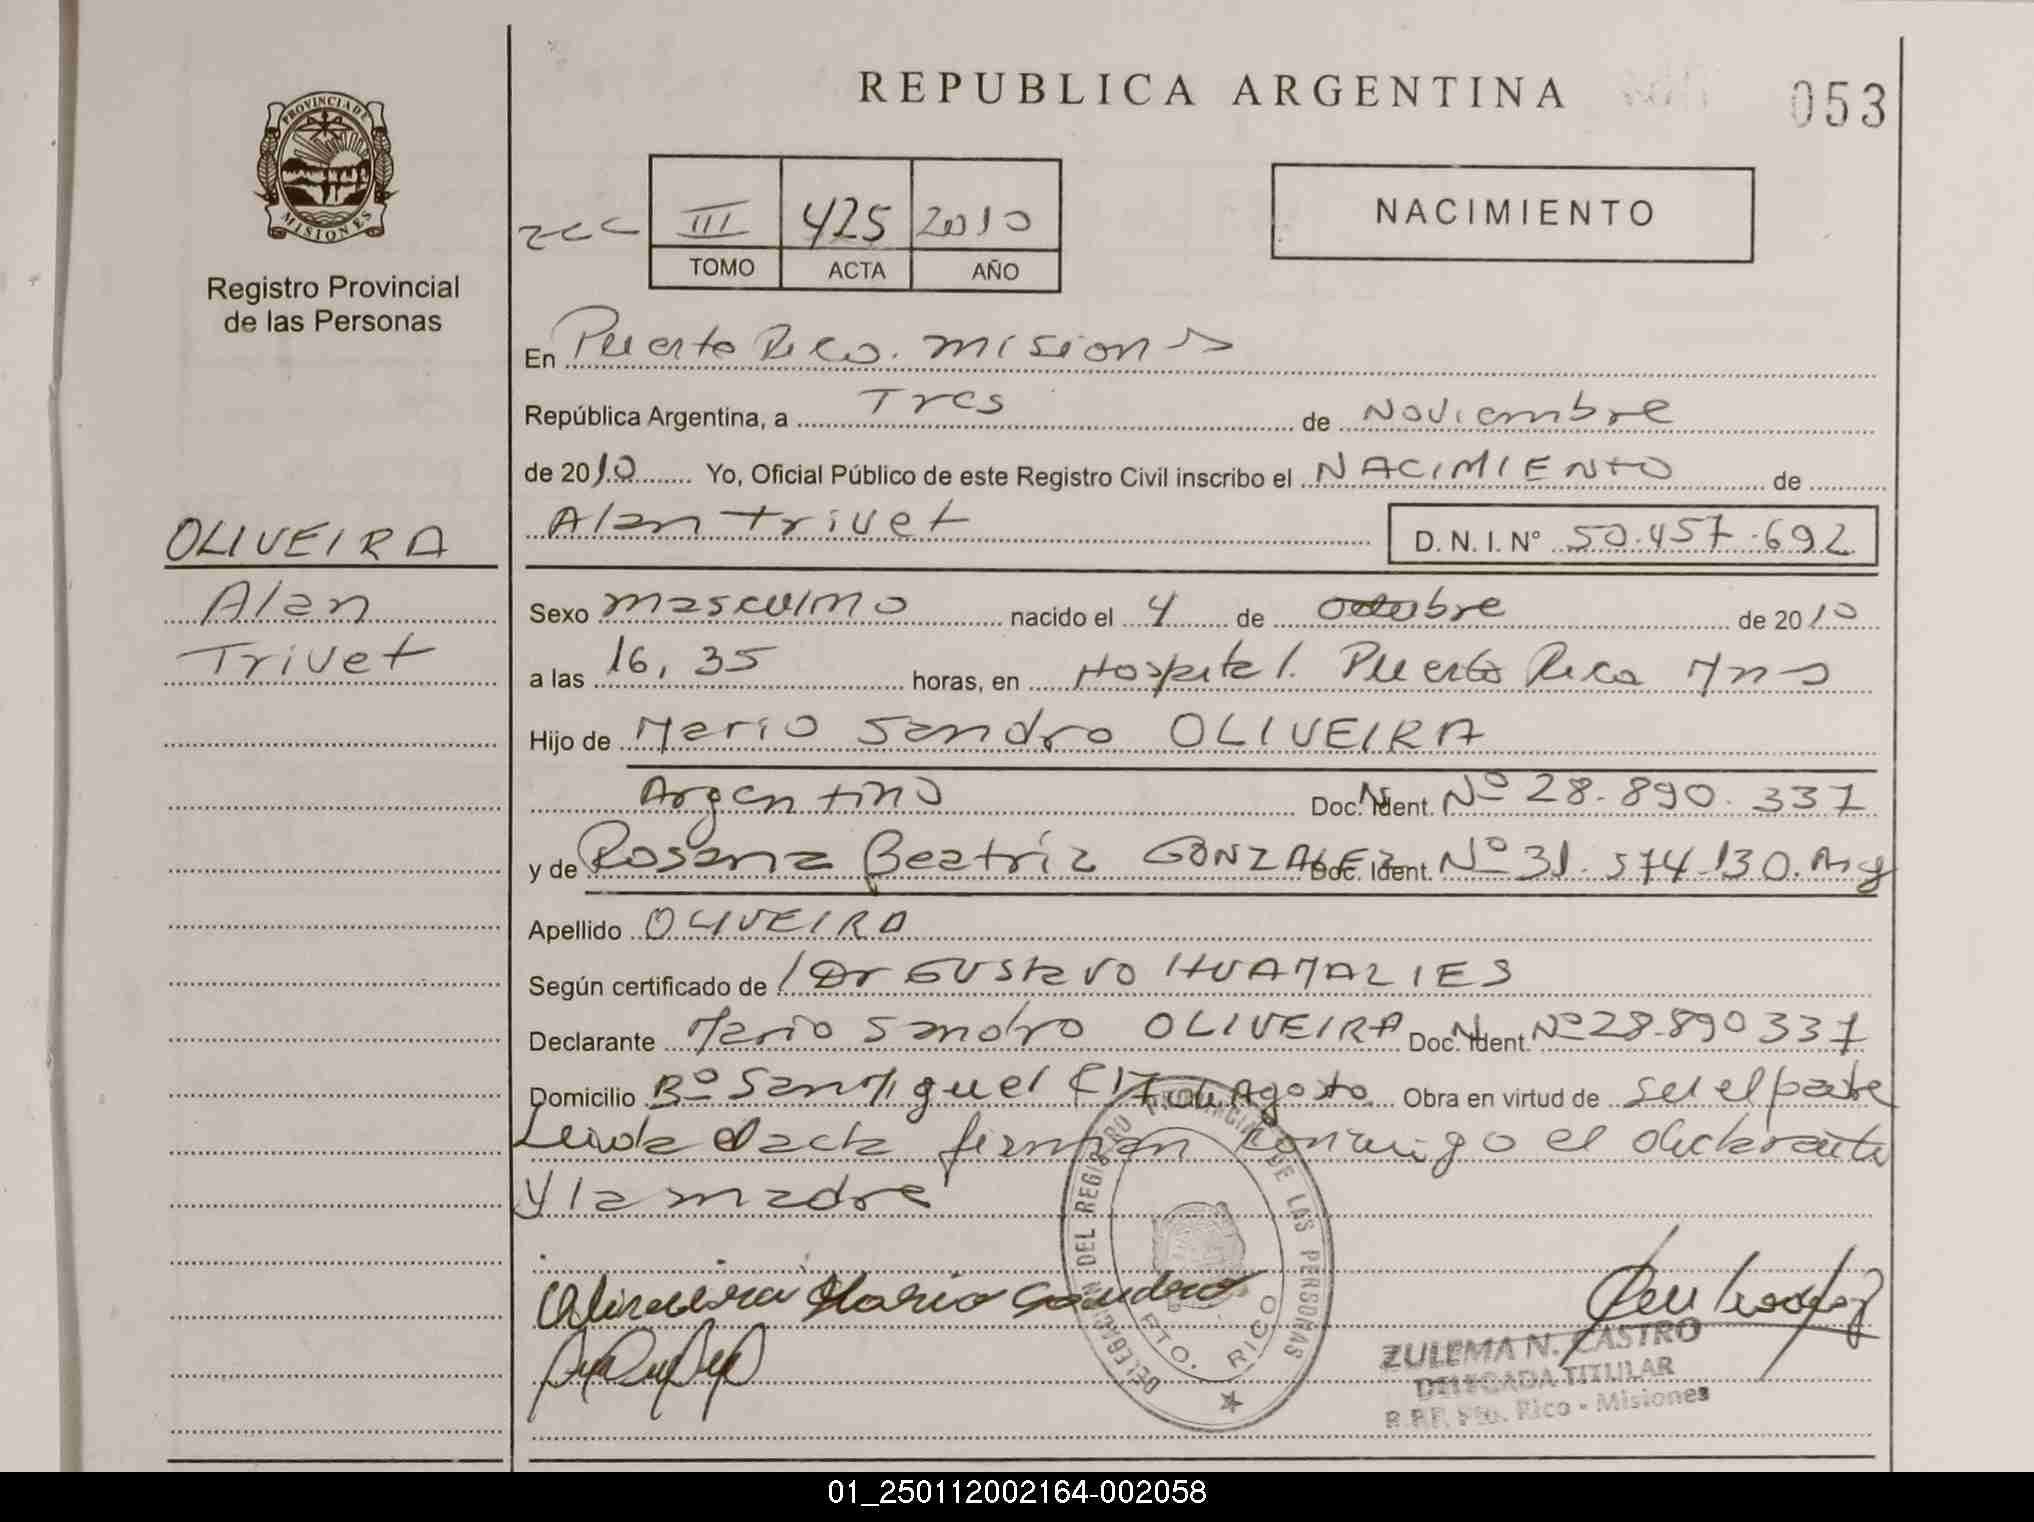 PROVINCIA DE
MISIONES
Registro Provincial
de las Personas
REPUBLICA ARGENTINA
053
III 425 2010
TOMO ACTA AÑO
NACIMIENTO
En Puerto Rico. Misiones
República Argentina, a Tres de Noviembre
de 2010 Yo, Oficial Público de este Registro Civil inscribo el NACIMIENTO de
Alan Trivet D. N. I. N° 50.457.692
OLIVEIRA
Alan
Trivet
Sexo masculino nacido el 4 de Octubre de 2010
a las 16,35 horas, en Hospital. Puerto Rico Mns
Hijo de Mario Sandro OLIVEIRA
Argentino Doc. Ident. Nº 28.890.337
y de Rosana Beatriz GONZALEZ Doc. Ident. Nº 31.574.130. Arg
Apellido OLIVEIRA
Según certificado de Dr Gustavo HUAMALIES
Declarante Mario Sandro OLIVEIRA Doc. Ident. Nº 28.890337
Domicilio Bº San Miguel C/17 de Agosto Obra en virtud de ser el padre
Leida el acta firman conmigo el declarante
y la madre
Oliveira Mario Sandro
DELEGACION DEL REGISTRO PROVINCIAL DE LAS PERSONAS
PTO. RICO
ZULEMA N. CASTRO
DELEGADA TITULAR
R.P.P. Pto. Rico - Misiones
01_250112002164-002058